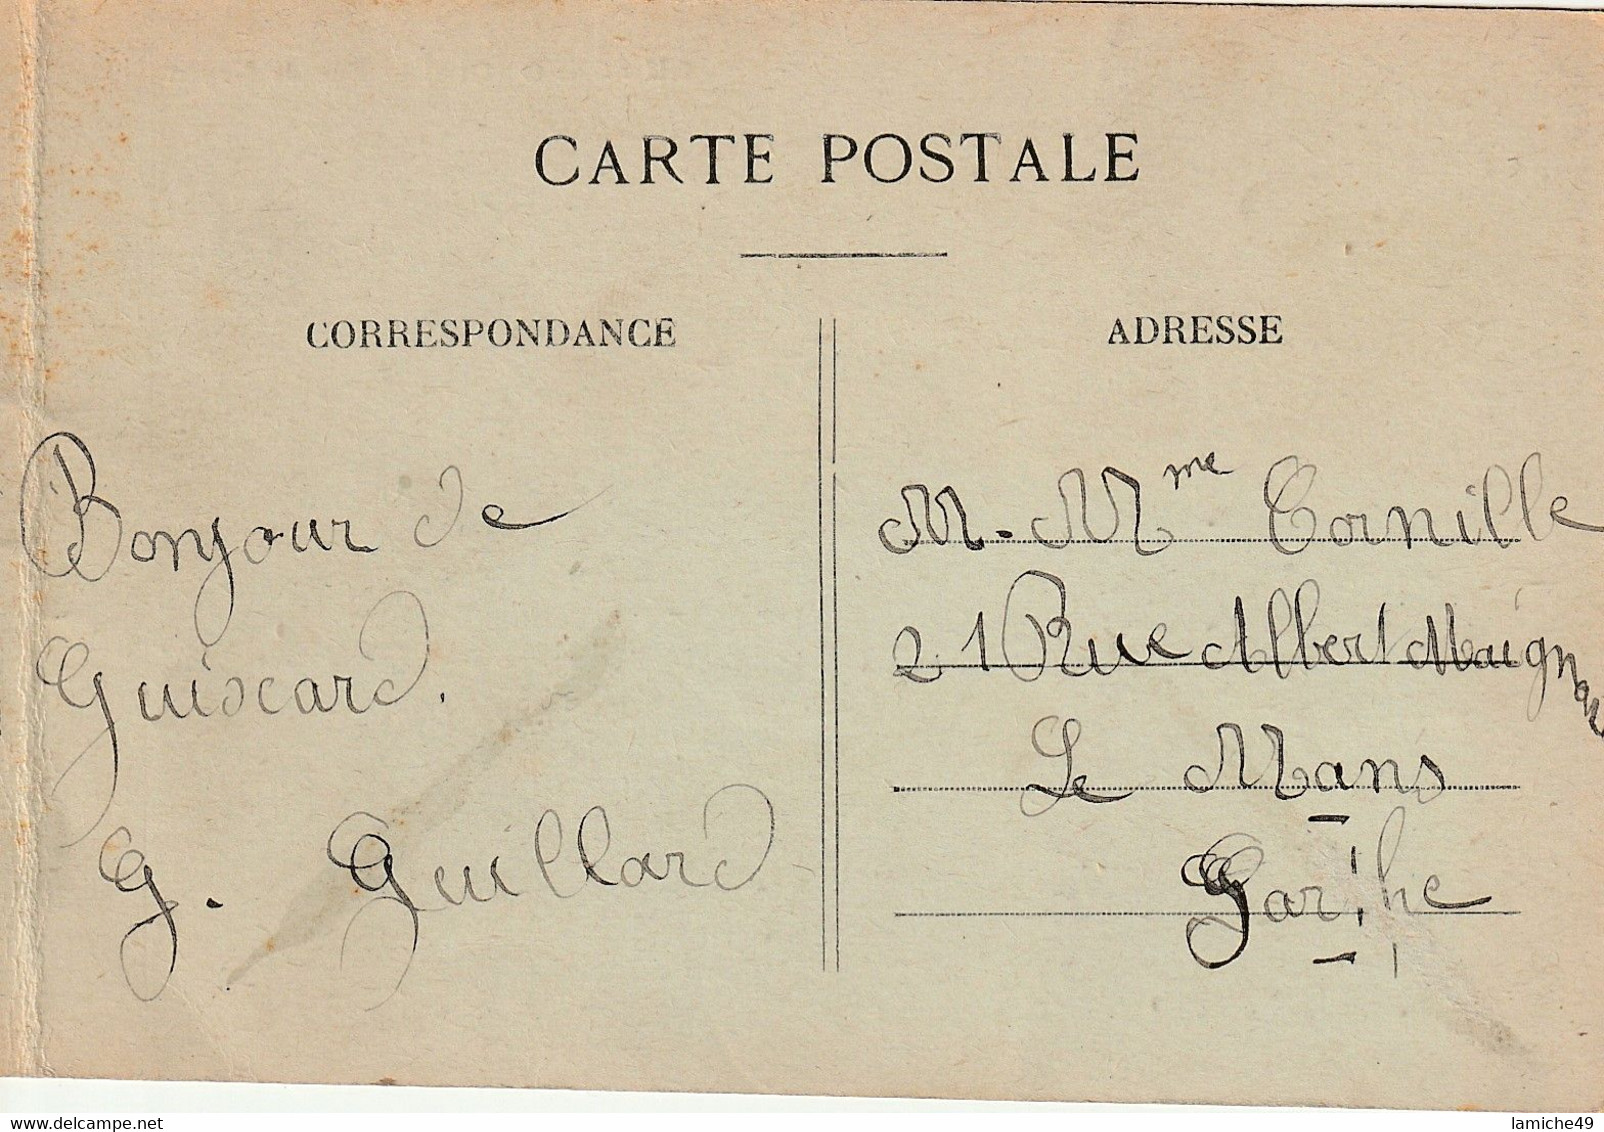 CARTE POSTALE
CORRESPONDANCE
Bonjour de
Guiscard.
G. Guillard
ADRESSE
M. Mme Cornille
21 Rue Albert Maignan
Le Mans
Sarthe
delcampe.net
lamiche49